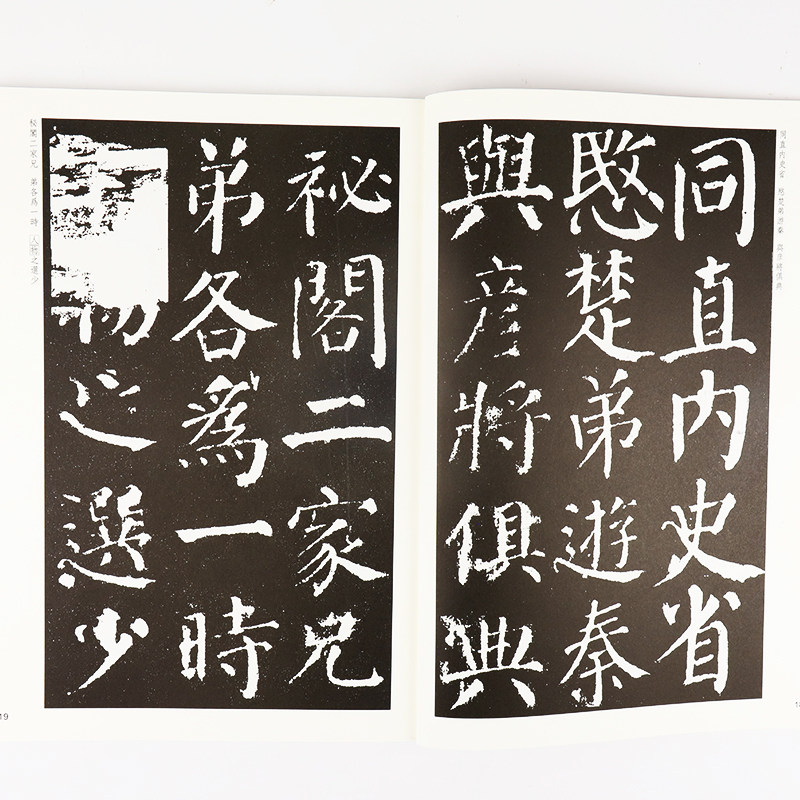 同直内史省
愍楚弟遊秦
與彦將俱典
祕閣二家兄
弟各爲一時
物之選少
同直内史省 愍楚弟遊秦 與彦將俱典
秘閣二家兄 弟各爲一時 人物之選少
19